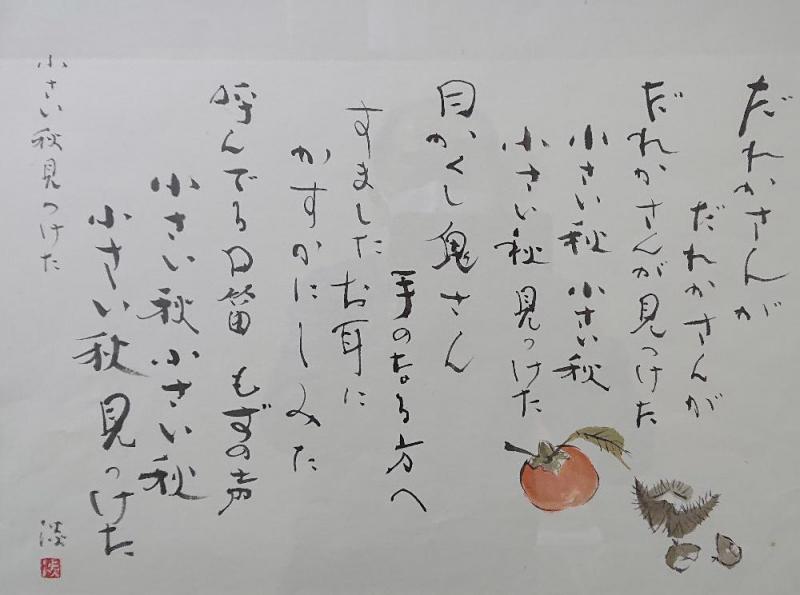 だれかさんが
だれかさんが
だれかさんが見つけた
小さい秋 小さい秋
小さい秋 見つけた
目かくし鬼さん
手のなる方へ
すましたお耳に
かすかにしみた
呼んでる口笛 もずの声
小さい秋 小さい秋
小さい秋 見つけた
小さい秋見つけた